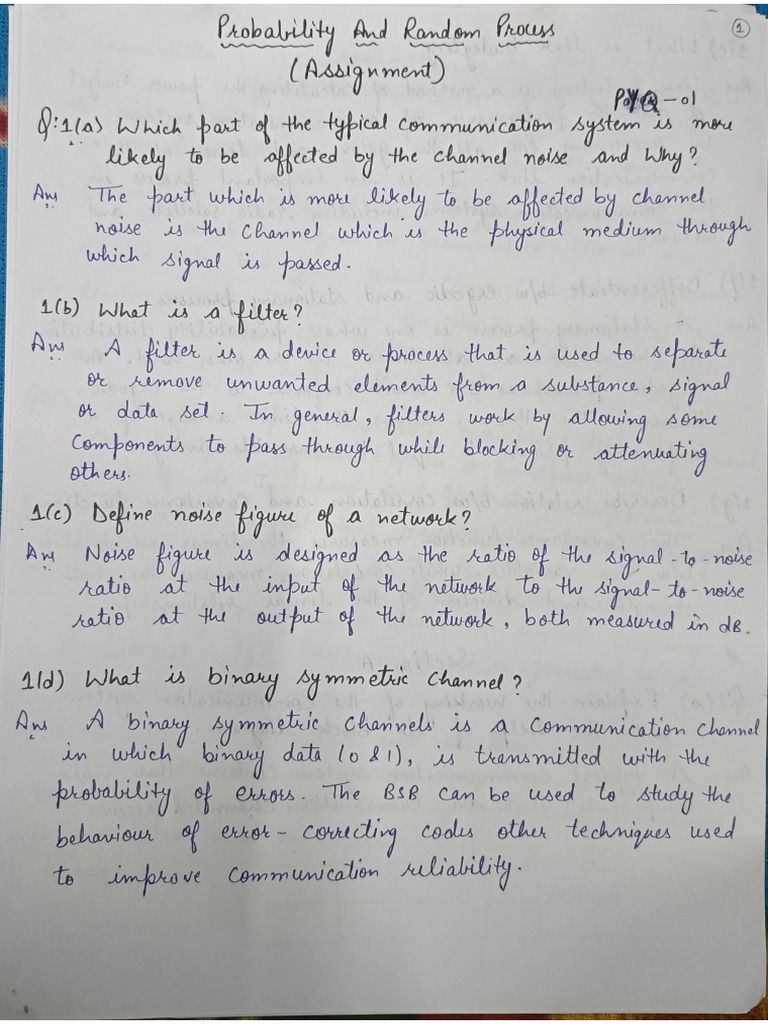 Probability And Random Process
1
(Assignment)
PYQ-01
Q:1(a) Which part of the typical communication system is more
likely to be affected by the channel noise and Why?
Ans The part which is more likely to be affected by channel
noise is the channel which is the physical medium through
which signal is passed.
1(b) What is a filter?
Ans A filter is a device or process that is used to separate
or remove unwanted elements from a substance, signal
or data set. In general, filters work by allowing some
components to pass through while blocking or attenuating
others.
1(c) Define noise figure of a network?
Ans Noise figure is designed as the ratio of the signal-to-noise
ratio at the input of the network to the signal-to-noise
ratio at the output of the network, both measured in dB.
1(d) What is binary symmetric Channel?
Ans A binary symmetric channels is a communication channel
in which binary data (0 & 1), is transmitted with the
probability of errors. The BSB can be used to study the
behaviour of error-correcting codes other techniques used
to improve communication reliability.